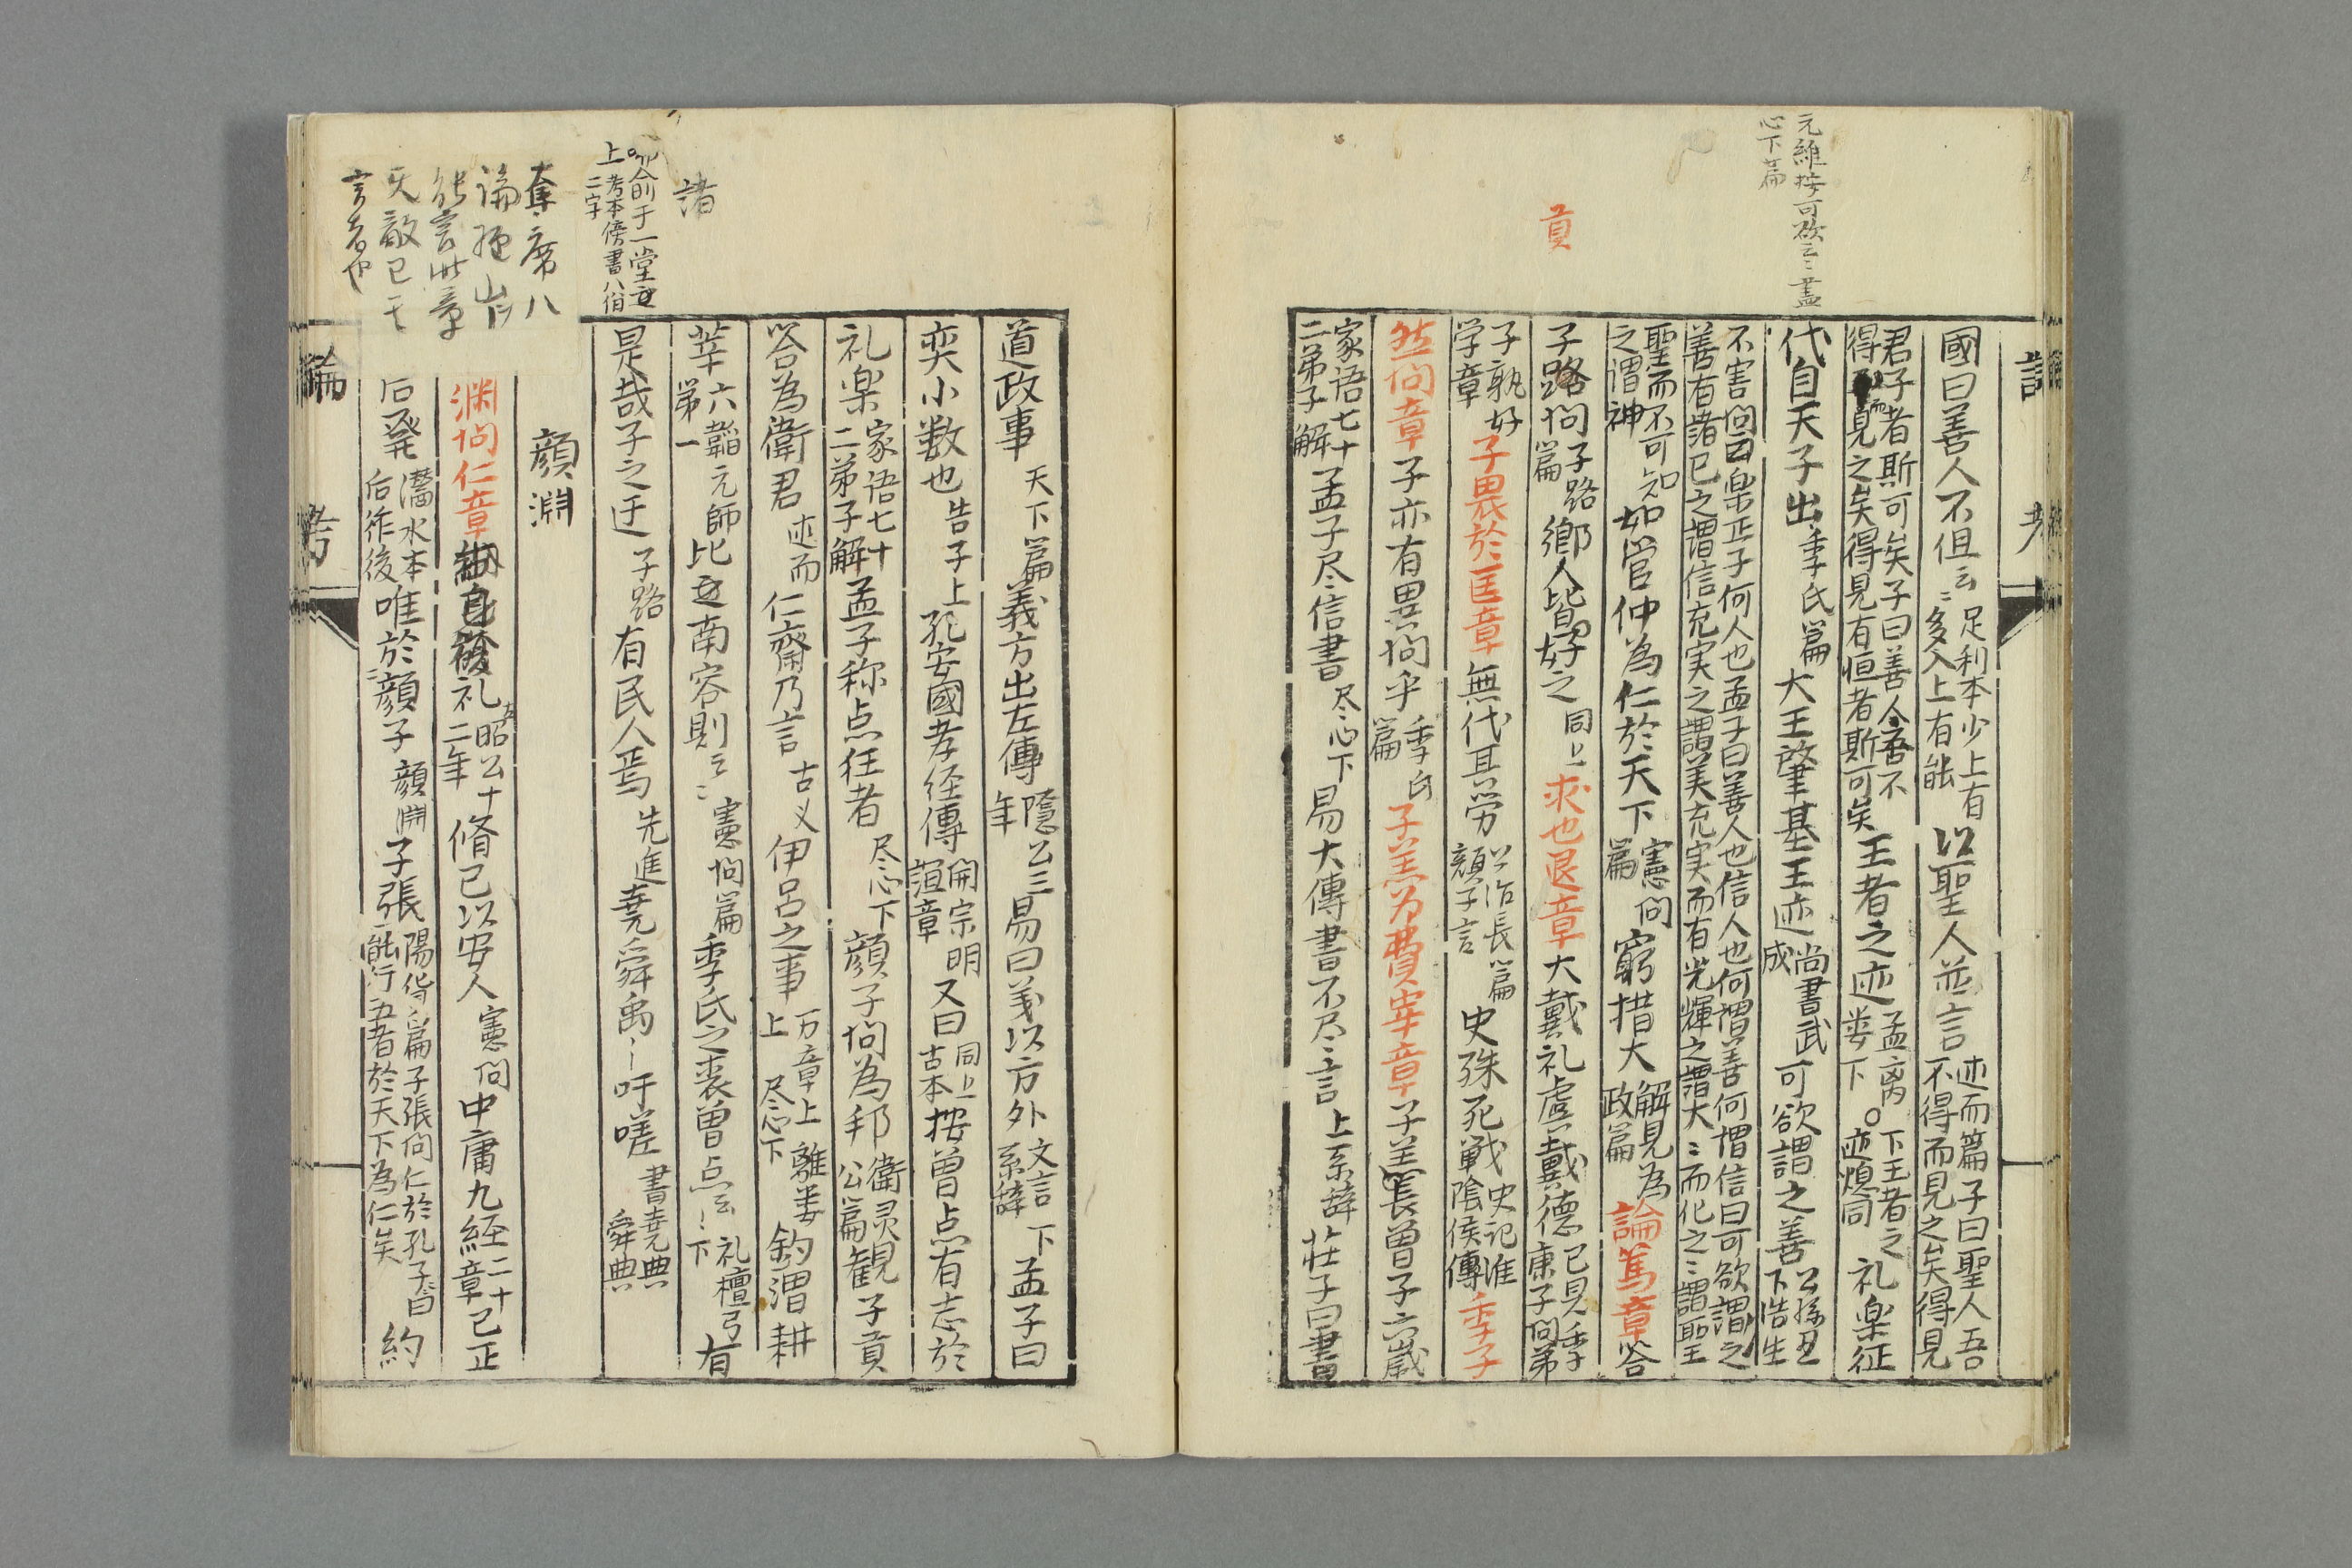 元維按可欲云〻盡
心下篇
貢
國曰善人不但云〻足利本少上有多入上有能以聖人並言述而篇子曰聖人吾不得而見之矣得見
君子者斯可矣子曰善人吾不得而見之矣得見有恒者斯可矣王者之迹孟离娄下○下王者之迹熄同礼楽征
代自天子出季氏篇大王肇基王迹尚書武成可欲謂之善公孫丑下浩生
不害問曰楽正子何人也孟子曰善人也信人也何謂善何謂信曰可欲謂之善有諸已之謂信充実之謂美充実而有光輝之謂大〻而化之〻謂聖
聖而不可知之謂神如管仲為仁於天下憲問篇窮措大解見為政篇論篤章答
子路問子路篇鄉人皆好之同上求也退章大戴礼盧戴德已見季康子問弟
子孰好学章子畏於匡章無代其労公冶長篇顔子言史殊死戦史記淮陰侯傳季子
然問章子亦有異問乎季氏篇子羔为費宰章子羔長曽子六歳
家语七十二弟子解孟子尽信書尽心下易大傳書不尽言上系辞荘子曰書
諸
吮俞于一堂之
上○考本傍書八佾
二字
奪席八
言者也
道政事天下篇義方出左傳隱公三年易曰義以方外文言系辞下孟子曰
奕小数也告子上孔安國孝経傳開宗明誼章又曰同上古本按曽点有志於
礼楽家语七十二弟子解孟子称点狂者尽心下顔子問為邦衛灵公篇観子貢
答為衛君述而仁齋乃言古义伊呂之事万章上尽心下離娄上釣渭耕
莘六韜第一元師比之南容則云〻憲問篇季氏之喪曽点云〻礼檀弓下有
是哉子之迂子路有民人焉先進堯舜禹〻吁嗟書堯典舜典
顔淵
渊问仁章礼左昭公十二年脩已以安人憲问中庸九経二十章已正
后発濡水本后作後唯於顔子顔淵子張陽貨篇子張问仁於孔子〻曰能行五者於天下為仁矣約
論
考